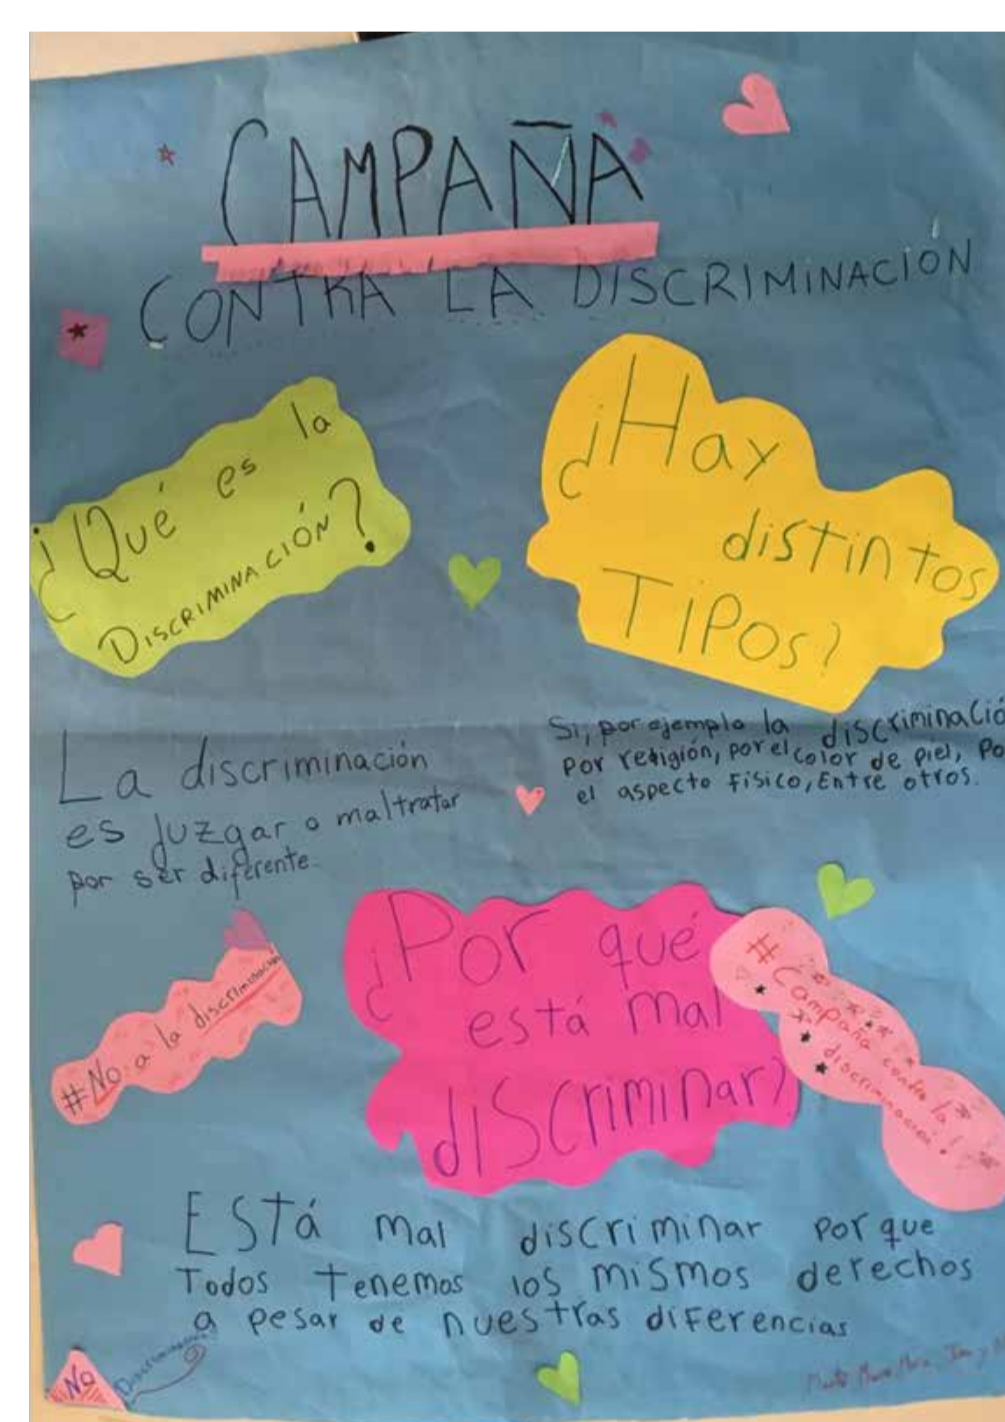 CAMPAÑA
CONTRA LA DISCRIMINACIÓN
¿Qué es la
DISCRIMINACIÓN?
¿Hay
distintos
TIPOS?
La discriminación
es juzgar o maltratar
por ser diferente.
Si, por ejemplo la discriminació
por religión, por el color de piel, Po
el aspecto físico, Entre otros.
#No a la discriminación
¿Por qué
está mal
discriminar?
#Campaña contra la
discriminación!
Está mal discriminar Porque
Todos Tenemos los mismos derechos
a pesar de nuestras diferencias
No
Discriminación